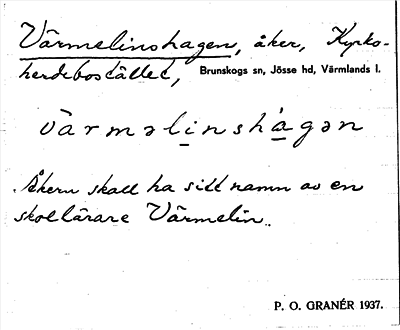 Värmelinshagen, åker, Kyrko-
herdebostället, Brunskogs sn, Jösse hd, Värmlands l.
vàrməlinshàgən
Åkern skall ha sitt namn av en
skollärare Värmelin.
P. O. GRANÉR 1937.